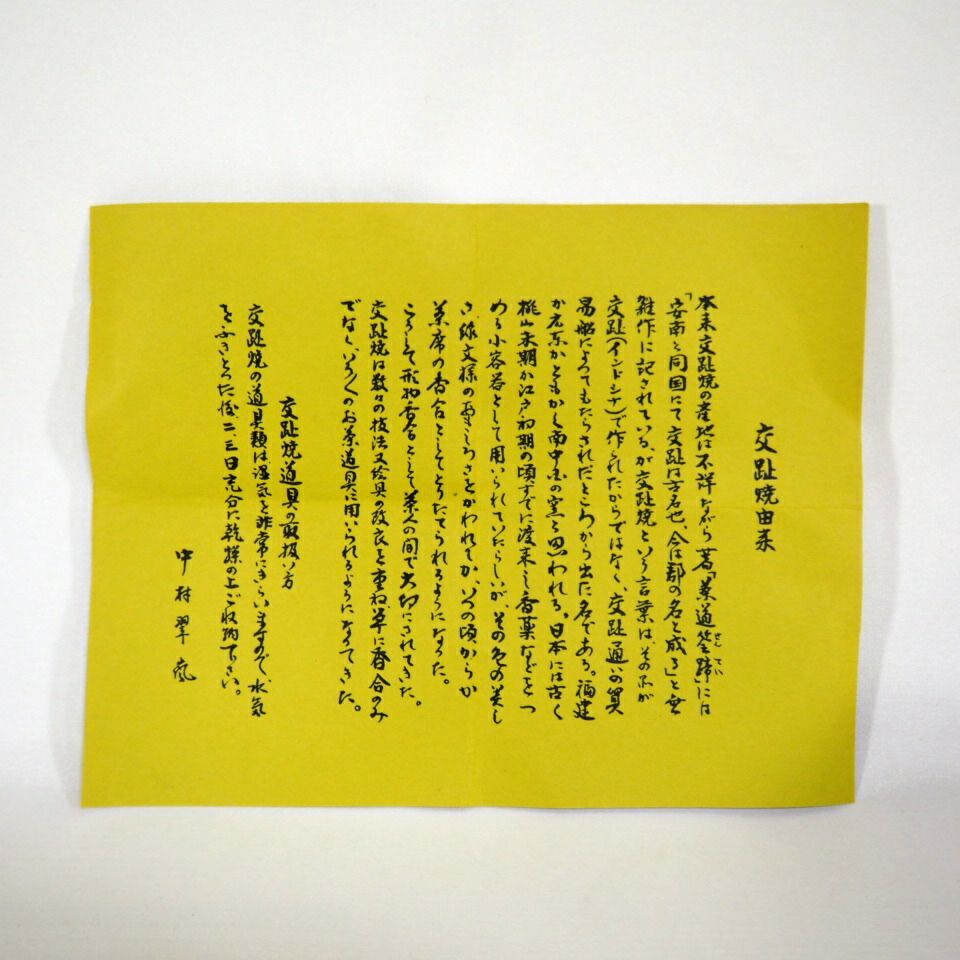 交趾焼由来
本来交趾焼の産地は不詳ながら 著「茶道筌蹄」には
せんてい
「安南と同国にて交趾は方名也、今は郡の名と成る」と
雑作に記されている、が交趾焼という言葉は、そのが
交趾(インドシナ)で作られたからではなく、交趾通いの貿
易船によってもたらされたところから出た名である。福建
か広東かともかく南中国の窯と思われる。日本には古く
桃山末期か江戸初期の頃すでに渡来し香薬などをつ
める小容器として用いられていたらしいが、その色の美し
さ、文様のおもしろさをかわれてか、いつの頃からか
茶席の香合としてとりたてられるようになった。
こうして形物香合として茶人の間で大切にされてきた。
交趾焼は数々の技法又絵具の改良を重ね、単に香合のみ
でなく、いろいろのお茶道具に用いられるようになってきた。
交趾焼道具の取扱い方
交趾焼の道具類は湿気を非常にきらいますので、水気
をふきとった後二三日充分に乾燥の上ご収納下さい。
中村翠嵐